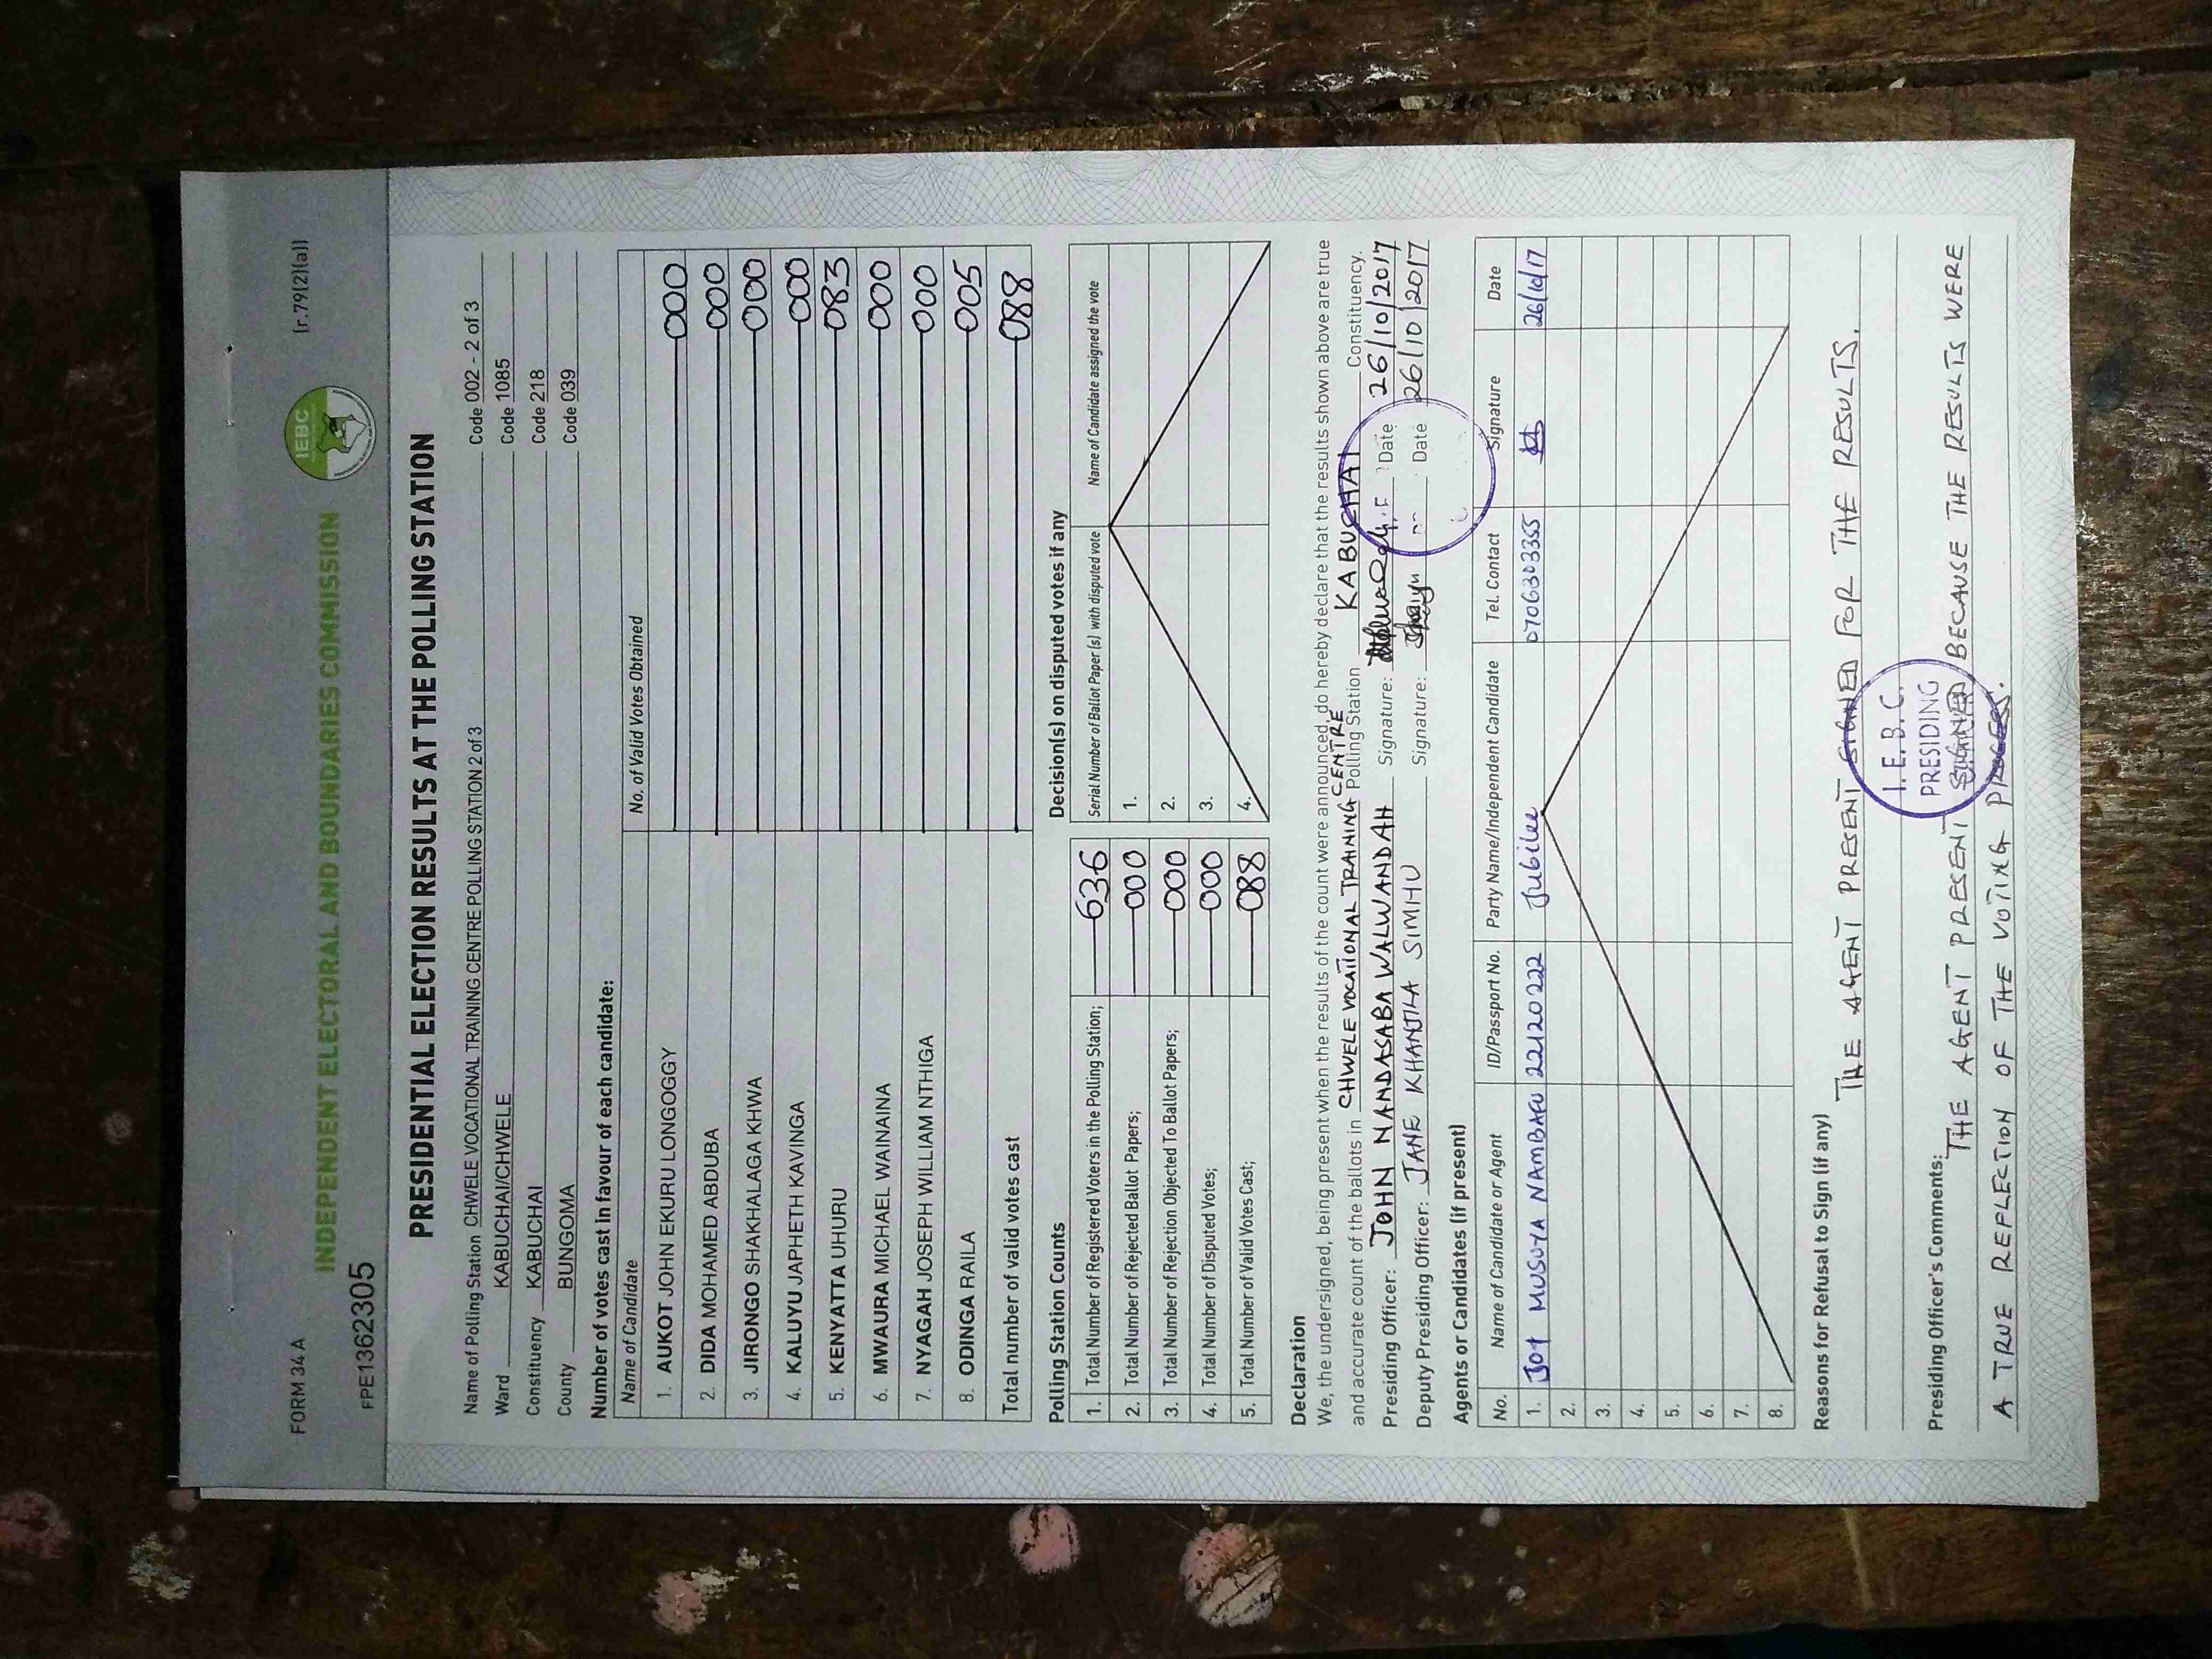 FORM 34 A
(r.79(2)(a))
FPE1362305
INDEPENDENT ELECTORAL AND BOUNDARIES COMMISSION
IEBC
PRESIDENTIAL ELECTION RESULTS AT THE POLLING STATION
Name of Polling Station CHWELE VOCATIONAL TRAINING CENTRE POLLING STATION 2 of 3 Code 002 - 2 of 3
Ward KABUCHAI/CHWELE Code 1085
Constituency KABUCHAI Code 218
County BUNGOMA Code 039
Number of votes cast in favour of each candidate:
Name of Candidate No. of Valid Votes Obtained
1. AUKOT JOHN EKURU LONGOGGY 000
2. DIDA MOHAMED ABDUBA 000
3. JIRONGO SHAKHALAGA KHWA 000
4. KALUYU JAPHETH KAVINGA 000
5. KENYATTA UHURU 083
6. MWAURA MICHAEL WAINAINA 000
7. NYAGAH JOSEPH WILLIAM NTHIGA 000
8. ODINGA RAILA 005
Total number of valid votes cast 088
Polling Station Counts
1. Total Number of Registered Voters in the Polling Station; 636
2. Total Number of Rejected Ballot Papers; 000
3. Total Number of Rejection Objected To Ballot Papers; 000
4. Total Number of Disputed Votes; 000
5. Total Number of Valid Votes Cast; 088
Decision(s) on disputed votes if any
Serial Number of Ballot Paper (s) with disputed vote Name of Candidate assigned the vote
1.
2.
3.
4.
Declaration
We, the undersigned, being present when the results of the count were announced, do hereby declare that the results shown above are true
and accurate count of the ballots in CHWELE VOCATIONAL TRAINING CENTRE Polling Station KABUCHAI Constituency.
Presiding Officer: JOHN NANDASABA WALWANDAH Signature: Date 26/10/2017
Deputy Presiding Officer: JANE KHANJILA SIMIHU Signature: Date 26/10/2017
Agents or Candidates (if present)
No. Name of Candidate or Agent ID/Passport No. Party Name/Independent Candidate Tel. Contact Signature Date
1. MUSUYA NAMBAFU 22120222 Jubilee 0706303355 26/10/17
2.
3.
4.
5.
6.
7.
8.
Reasons for Refusal to Sign (if any)
THE AGENT PRESENT SIGNED FOR THE RESULTS.
I.E.B.C.
PRESIDING
Presiding Officer's Comments:
THE AGENT PRESENT SIGNED BECAUSE THE RESULTS WERE
A TRUE REFLECTION OF THE VOTING PROCESS.